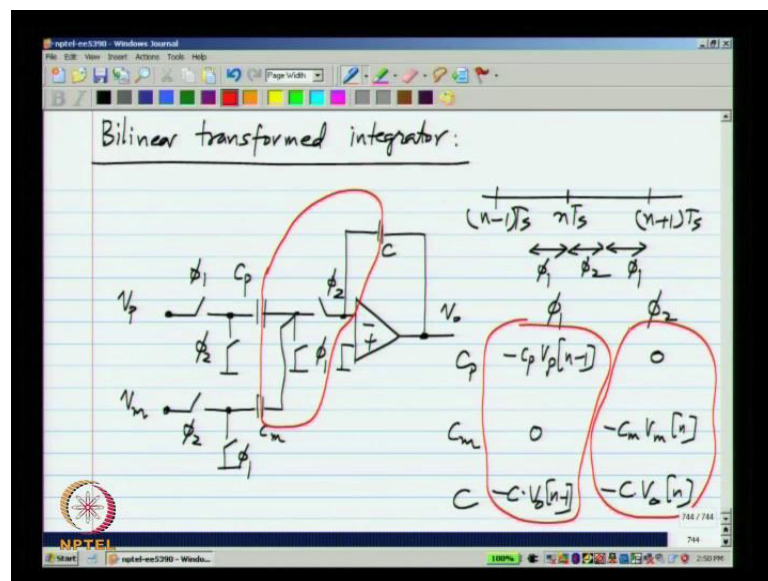 nptel-ee5390 - Windows Journal
File Edit View Insert Actions Tools Help
Page Width
B I
Bilinear transformed integrator:
(n-1)Ts nTs (n+1)Ts
ϕ1 ϕ2 ϕ1
C
ϕ1 Cp ϕ2
Vp Vo
ϕ2 ϕ1
- +
Vm
ϕ2 Cm
ϕ1
ϕ1 ϕ2
Cp -Cp Vp[n-1] 0
Cm 0 -Cm Vm[n]
C -C·Vo[n-1] -C·Vo[n]
744 / 744
744
NPTEL
Start nptel-ee5390 - Windo... 100% 2:50 PM